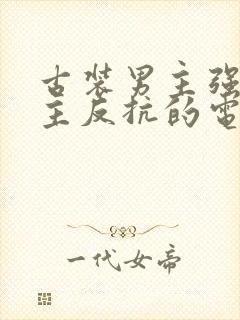 古装男主强
主反抗的电
一代女帝